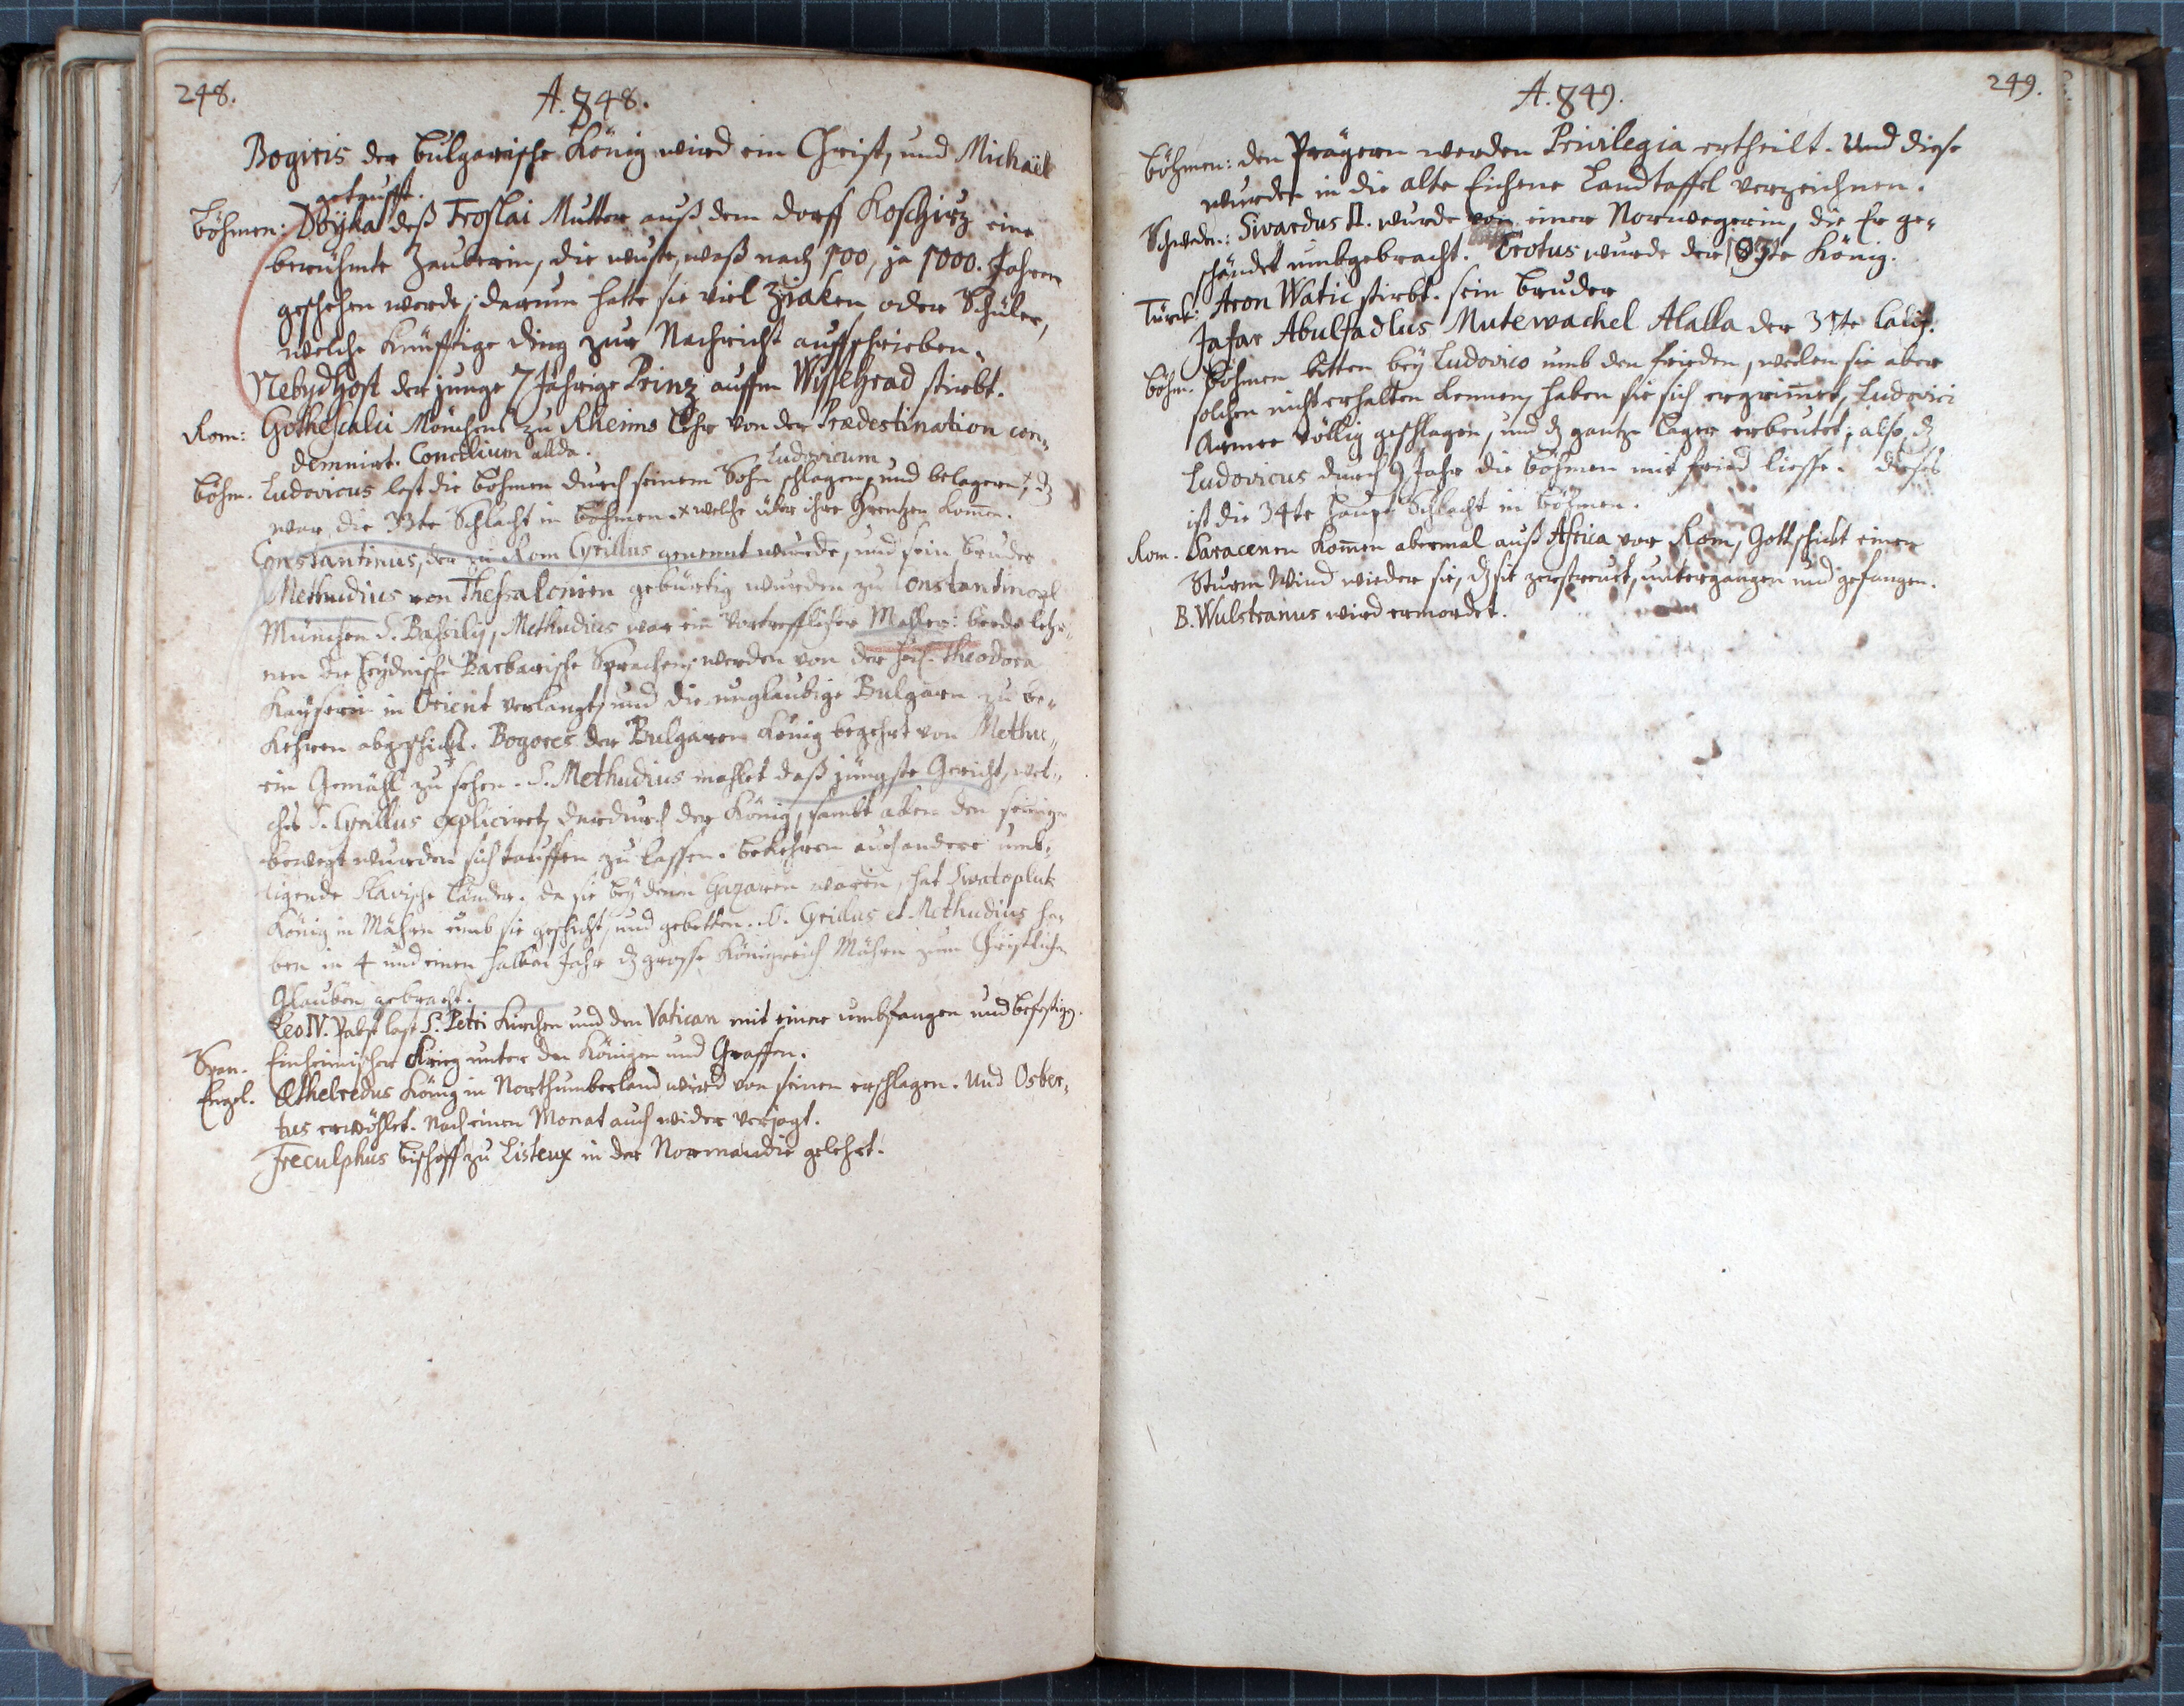 248.
A. 848.
Bogiris der Bulgarische König wird ein Christ, und Michaël
getaufft.
Böhmen: Doyka deß Froslai Mutter auß dem dorff Koschirz eine
berühmte Zauberin, die wuste, waß nach 100, ja 1000. Jahren
geschehen werde; darum hatte sie viel Ziaken oder Schüler,
welche künfftige ding zur Nachricht auffschrieben.
Nebydhost der junge 7 Jährige Prinz auffm Wyssehrad stirbt.
Rom: Gothescalci Mönchens zu Rheims Lehr von der Prædestination con„
demnirt. Concilium allda.
Ludovicum
Böhm. Ludovicus lest die Böhmen durch seinem Sohn schlagen, und belagern, + dz
war die 33te Schlacht in Böhmen. + welche über ihre Grentzen komen.
Constantinus, der zu Rom Cyrillus genennt wurde, und sein bruder
Methudius von Thessalonien gebürtig wurden zu Constantinopl
München S. Basilij, Methudius war ein Vortrefflicher Mahler: beede lehr„
nen die heydnische Barbarische Sprachen; werden von der Theodora
Kayserin in Orient verlangt, und die unglaubige Bulgarn zu be„
kehren abgeschickt. Bogores der Bulgaren König begehrt von Methu„
ein Gemähl zu sehen. S. Methudius mahlet daß jüngste Gericht, wel„
ches S. Cyrillus expliciret, dardurch der König, sambt allen den seinigen
bewegt wurden sich tauffen zu lassen. bekehren auch andere umb„
ligende Slavische Länder. da sie bey denen Gazaren waren, hat Swatopluk
König in Mähren umb sie geschickt, und gebetten. S. Cyrillus et Methudius ha„
ben in 4 und einen halben Jahr dz grosse Königreich Mähren zum Christlichen
Glauben gebracht.
Leo IV. Pabst last S. Petri Kirchen und den Vatican mit einer umbfangen und befestigen.
Span. Einheimischer Krieg unter den Königen und Graffen.
Engel. Æthelredus König in Northumberland wird von seinen erschlagen. Und Osber„
tus erwöhlet. Nach einen Monat auch wider verjagt.
Freculphus Bischoff zu Listeux in der Normandie gelehrt.
249.
A. 849.
Böhmen: den Prägern werden Privilegia ertheilt. Und diese
wurden in die alte Eichene Landtaffel verzeichnen.
Schweden: Sivardus II. wurde von einer Norwegerin, die Er ge„
schändet umbgebracht. Erotus wurde der 83te König.
Türck: Aron Watic stirbt. sein bruder
Jafar Abulfadlus Mutewachel Alalla der 31te Calif.
Böhm. Böhmen bitten bey Ludovico umb den frieden, weilen sie aber
solchen nicht erhalten kennen, haben sie sich ergrimet, Ludovici
Armee völlig geschlagen, und dz gantze Lager erbeutet; also, dz
Ludovicus durch 9 Jahr die Böhmen mit fried liesse. dieses
ist die 34te Haupt Schlacht in Böhmen.
Rom. Saracenen komen abermal auß Africa vor Rom, Gott schickt einen
Sturm Wind wieder sie, dz sie zerstreut, untergangen und gefangen.
B. Wulstranus wird ermordet.